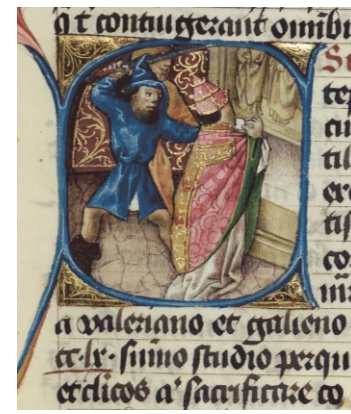 q̄ t contingerant omību
St
tep
cu
til
ere
tis
co
a valeriano et galieno
cc·lx· sūmo studio perqui
et clicos a' sacrificare co